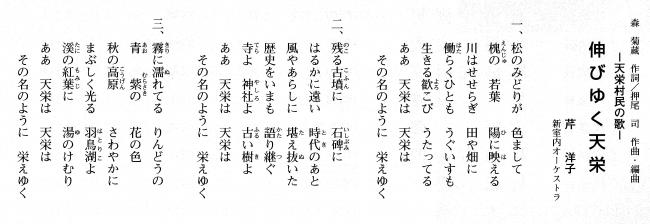 森 菊蔵 作詞/押尾 司 作曲・編曲
伸びゆく天栄
―天栄村民の歌―
芹 洋子
新室内オーケストラ
一、松のみどりが 色まして
槐の 若葉 陽に映える
川はせせらぎ 田や畑に
働らくひとも うぐいすも
生きる歓こび うたってる
ああ 天栄は 天栄は
その名のように 栄えゆく
二、残る古墳に 石碑に
はるかに遠い 時代のあと
風やあらしに 堪え抜いた
歴史をいまも 語り継ぐ
寺よ 神社よ 古い樹よ
ああ 天栄は 天栄は
その名のように 栄えゆく
三、霧に濡れてる りんどうの
青 紫の 花の色
秋の高原 さわやかに
まぶしく光る 羽鳥湖よ
渓の紅葉に 湯のけむり
ああ 天栄は 天栄は
その名のように 栄えゆく